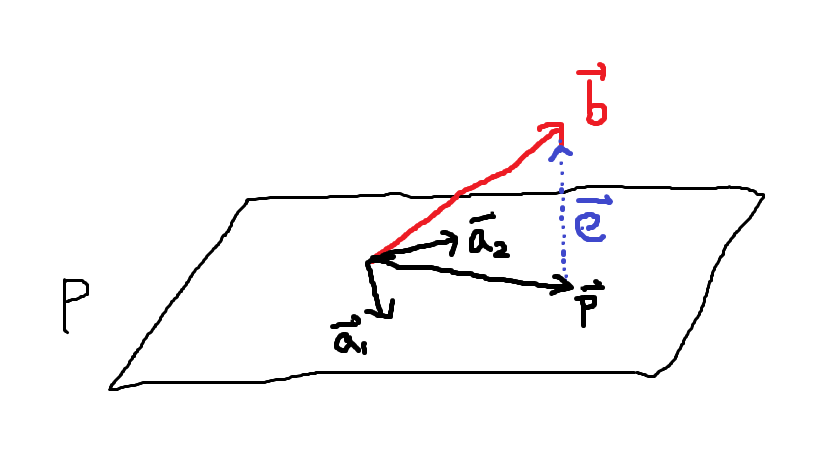 b⃗
e⃗
a⃗₂
P
p⃗
a⃗₁